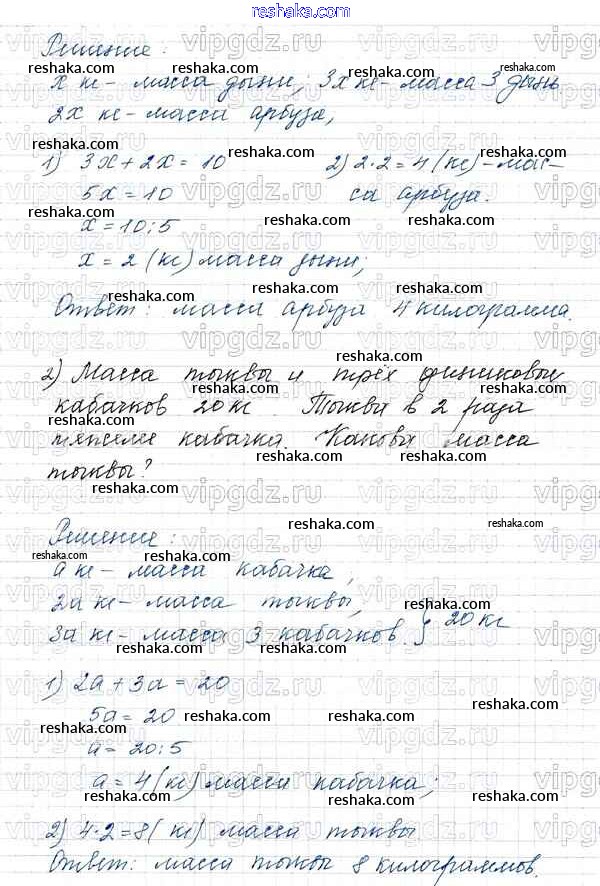 reshaka.com
Решение:
x кг - масса дыни; 3x кг - масса 3 дынь
2x кг - масса арбуза,
1) 3x + 2x = 10 2) 2·2 = 4 (кг) - мас-
5x = 10 са арбуза.
x = 10:5
x = 2 (кг) масса дыни;
Ответ: масса арбуза 4 килограмма.
2) Масса тыквы и трёх одинаковых
кабачков 20 кг. Тыква в 2 раза
тяжелее кабачка. Какова масса
тыквы?
Решение:
a кг - масса кабачка;
2a кг - масса тыквы,
3a кг - масса 3 кабачков. } 20 кг
1) 2a + 3a = 20
5a = 20
a = 20:5
a = 4 (кг) масса кабачка;
2) 4·2 = 8 (кг) масса тыквы
Ответ: масса тыквы 8 килограммов.